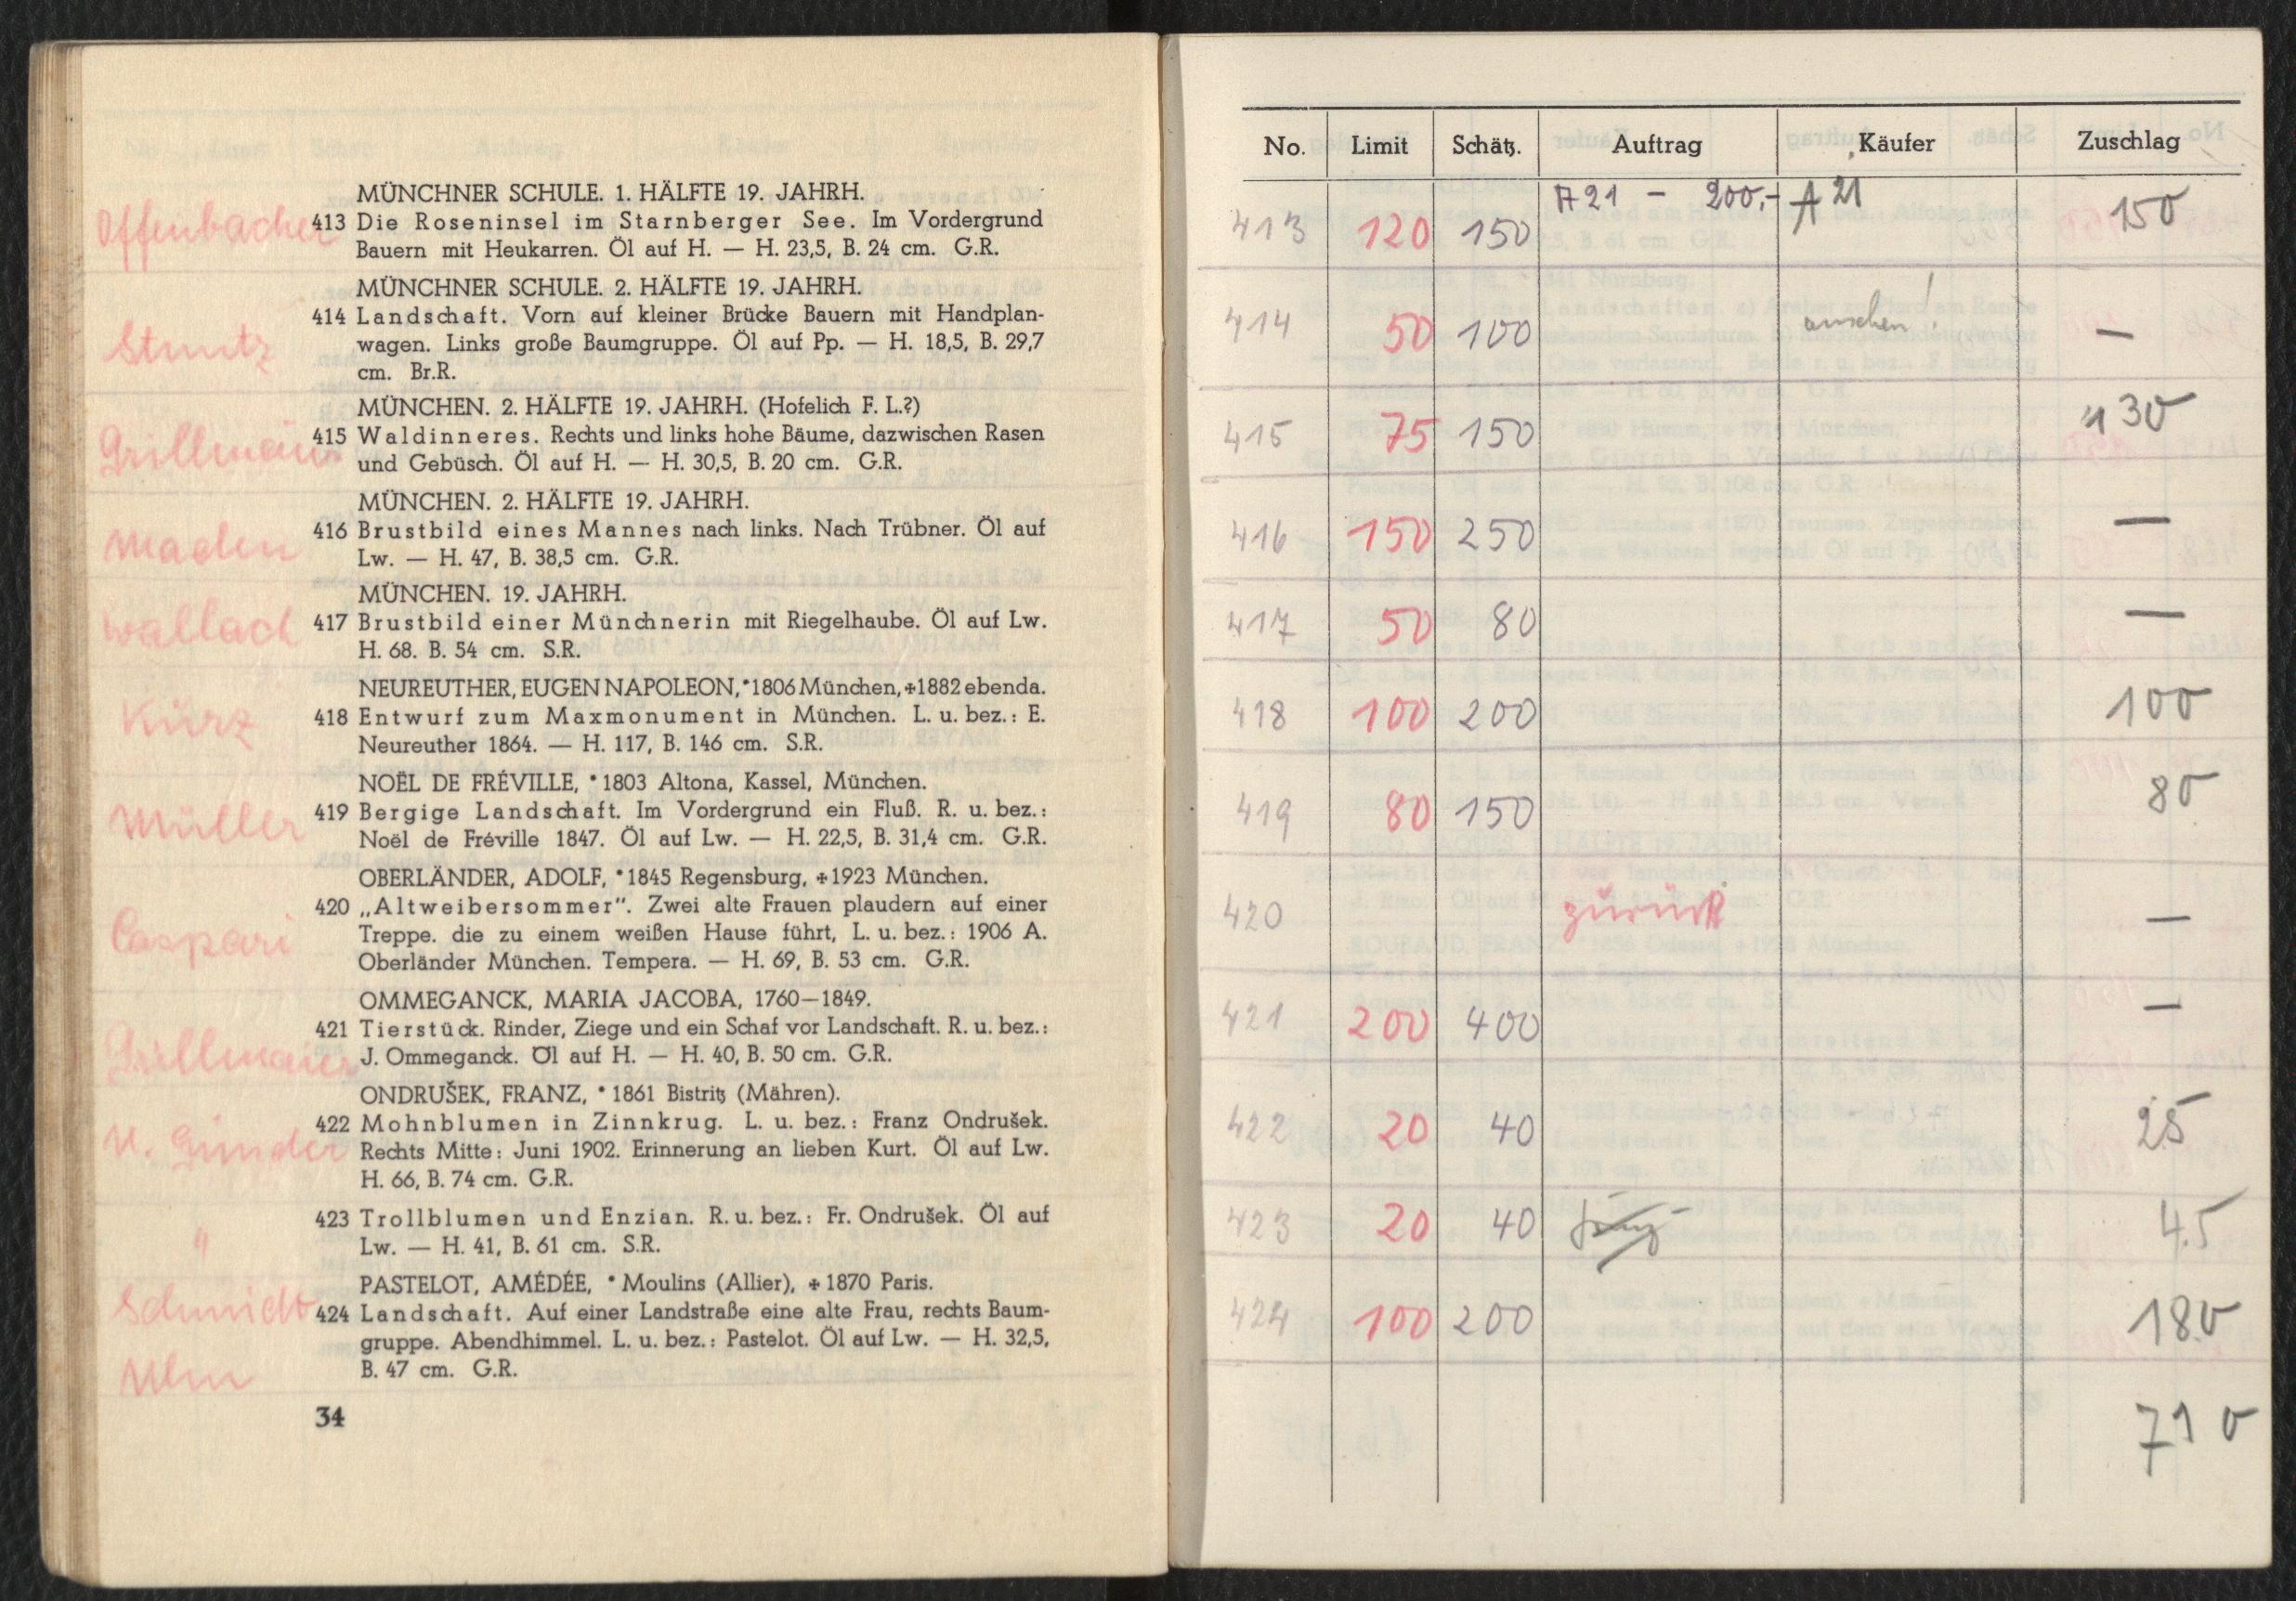 MÜNCHNER SCHULE. 1. HÄLFTE 19. JAHRH.
Offenbacher
413 Die Roseninsel im Starnberger See. Im Vordergrund
Bauern mit Heukarren. Öl auf H. — H. 23,5, B. 24 cm. G.R.
MÜNCHNER SCHULE. 2. HÄLFTE 19. JAHRH.
414 Landschaft. Vorn auf kleiner Brücke Bauern mit Handplan-
Stuntz
wagen. Links große Baumgruppe. Öl auf Pp. — H. 18,5, B. 29,7
cm. Br.R.
MÜNCHEN. 2. HÄLFTE 19. JAHRH. (Hofelich F. L.?)
Grillmaier
415 Waldinneres. Rechts und links hohe Bäume, dazwischen Rasen
und Gebüsch. Öl auf H. — H. 30,5, B. 20 cm. G.R.
MÜNCHEN. 2. HÄLFTE 19. JAHRH.
Maden
416 Brustbild eines Mannes nach links. Nach Trübner. Öl auf
Lw. — H. 47, B. 38,5 cm. G.R.
MÜNCHEN. 19. JAHRH.
Wallach
417 Brustbild einer Münchnerin mit Riegelhaube. Öl auf Lw.
H. 68. B. 54 cm. S.R.
NEUREUTHER, EUGEN NAPOLEON, *1806 München, +1882 ebenda.
Kürz
418 Entwurf zum Maxmonument in München. L. u. bez.: E.
Neureuther 1864. — H. 117, B. 146 cm. S.R.
NOËL DE FRÉVILLE, *1803 Altona, Kassel, München.
Müller
419 Bergige Landschaft. Im Vordergrund ein Fluß. R. u. bez.:
Noël de Fréville 1847. Öl auf Lw. — H. 22,5, B. 31,4 cm. G.R.
OBERLÄNDER, ADOLF, *1845 Regensburg, +1923 München.
420 „Altweibersommer“. Zwei alte Frauen plaudern auf einer
Caspari
Treppe. die zu einem weißen Hause führt, L. u. bez.: 1906 A.
Oberländer München. Tempera. — H. 69, B. 53 cm. G.R.
OMMEGANCK, MARIA JACOBA, 1760—1849.
421 Tierstück. Rinder, Ziege und ein Schaf vor Landschaft. R. u. bez.:
Grillmaier
J. Ommeganck. Öl auf H. — H. 40, B. 50 cm. G.R.
ONDRUŠEK, FRANZ, *1861 Bistritz (Mähren).
422 Mohnblumen in Zinnkrug. L. u. bez.: Franz Ondrušek.
Rechts Mitte: Juni 1902. Erinnerung an lieben Kurt. Öl auf Lw.
H. 66, B. 74 cm. G.R.
423 Trollblumen und Enzian. R. u. bez.: Fr. Ondrušek. Öl auf
"
Lw. — H. 41, B. 61 cm. S.R.
PASTELOT, AMÉDÉE, * Moulins (Allier), +1870 Paris.
Schmidt
424 Landschaft. Auf einer Landstraße eine alte Frau, rechts Baum-
gruppe. Abendhimmel. L. u. bez.: Pastelot. Öl auf Lw. — H. 32,5,
Ulm
B. 47 cm. G.R.
34
No. Limit Schätz. Auftrag Käufer Zuschlag
413 120 150 A 21 — 200,- A 21 150
414 50 100 —
415 75 150 130
416 150 250 —
417 50 80 —
418 100 200 100
419 80 150 80
420 zurück —
421 200 400 —
422 20 40 25
423 20 40 45
424 100 200 180
710